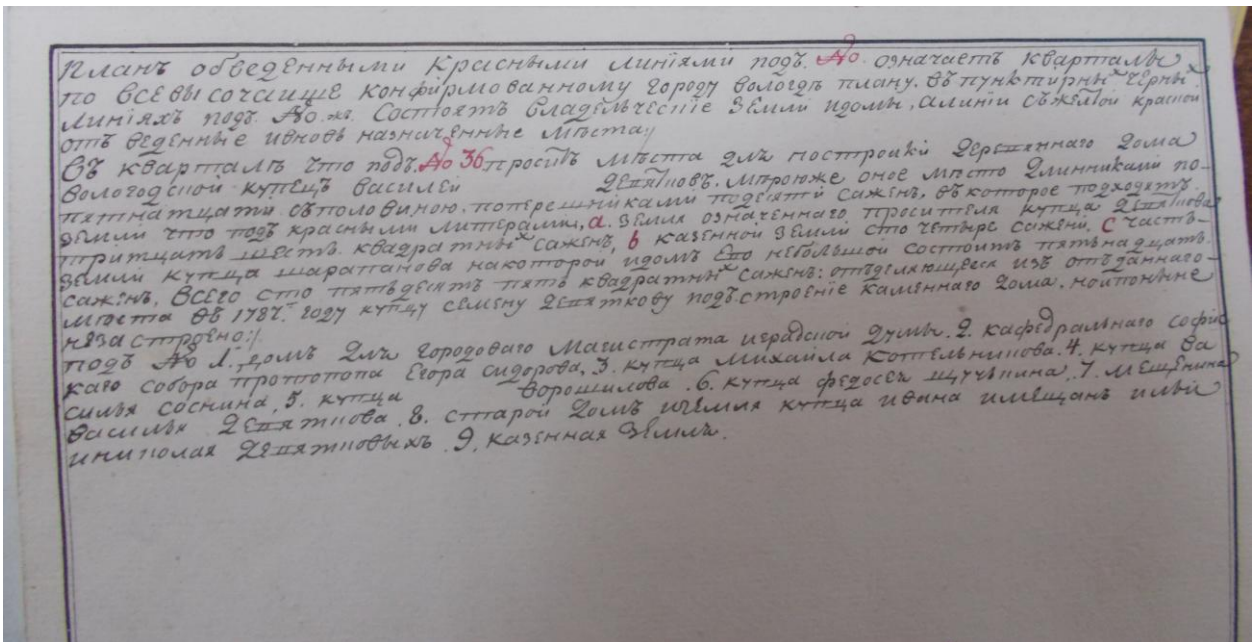 Планъ обведенными красными линиями подъ. № означаетъ кварталы
по всевысочайше конфирмованному городу вологдѣ плану. въ пунктирныхъ черныхъ
линияхъ подъ. №. Состоятъ владѣльческие земли идомы, алинии съжелтой красной
отъ веденные ивновь назначенные мѣста:/
Въ кварталѣ что подъ. № 36 проситъ мѣста для постройки деревяннаго дома
вологодской купецъ василей девятковъ. мѣроюже оное мѣсто длинниками по
пятнатцати съполовиною, поперешниками подесяти саженъ, въкоторое подходятъ
земли что подъ красными литерами, а. земля означеннаго просителя купца девяткова
тритцать шесть квадратныхъ саженъ, b казенной земли сто четыре сажени, c часть
земли купца шарапанова накоторой идомъ ево небольшой состоитъ пятьнадцать
саженъ, всего сто пятьдесятъ пять квадратныхъ саженъ: отъделяющееся изъ отъданнаго
мѣста въ 1787. году купцу семену девяткову подъ строение каменнаго дома, нопоныне
незастроено:/
подъ № 1. домъ для городоваго магистрата иградской думы. 2. кафедральнаго софийс
каго собора протопопа Егора сидорова, 3. купца михайла котельникова. 4. купца ва
силья соснина, 5. купца ворошилова. 6. купца федосея щучькина, 7. мещенина
василья девяткова. 8. старой домъ иземля купца ивана имещанъ ильи
иниколая девятковыхъ. 9. казенная земля.